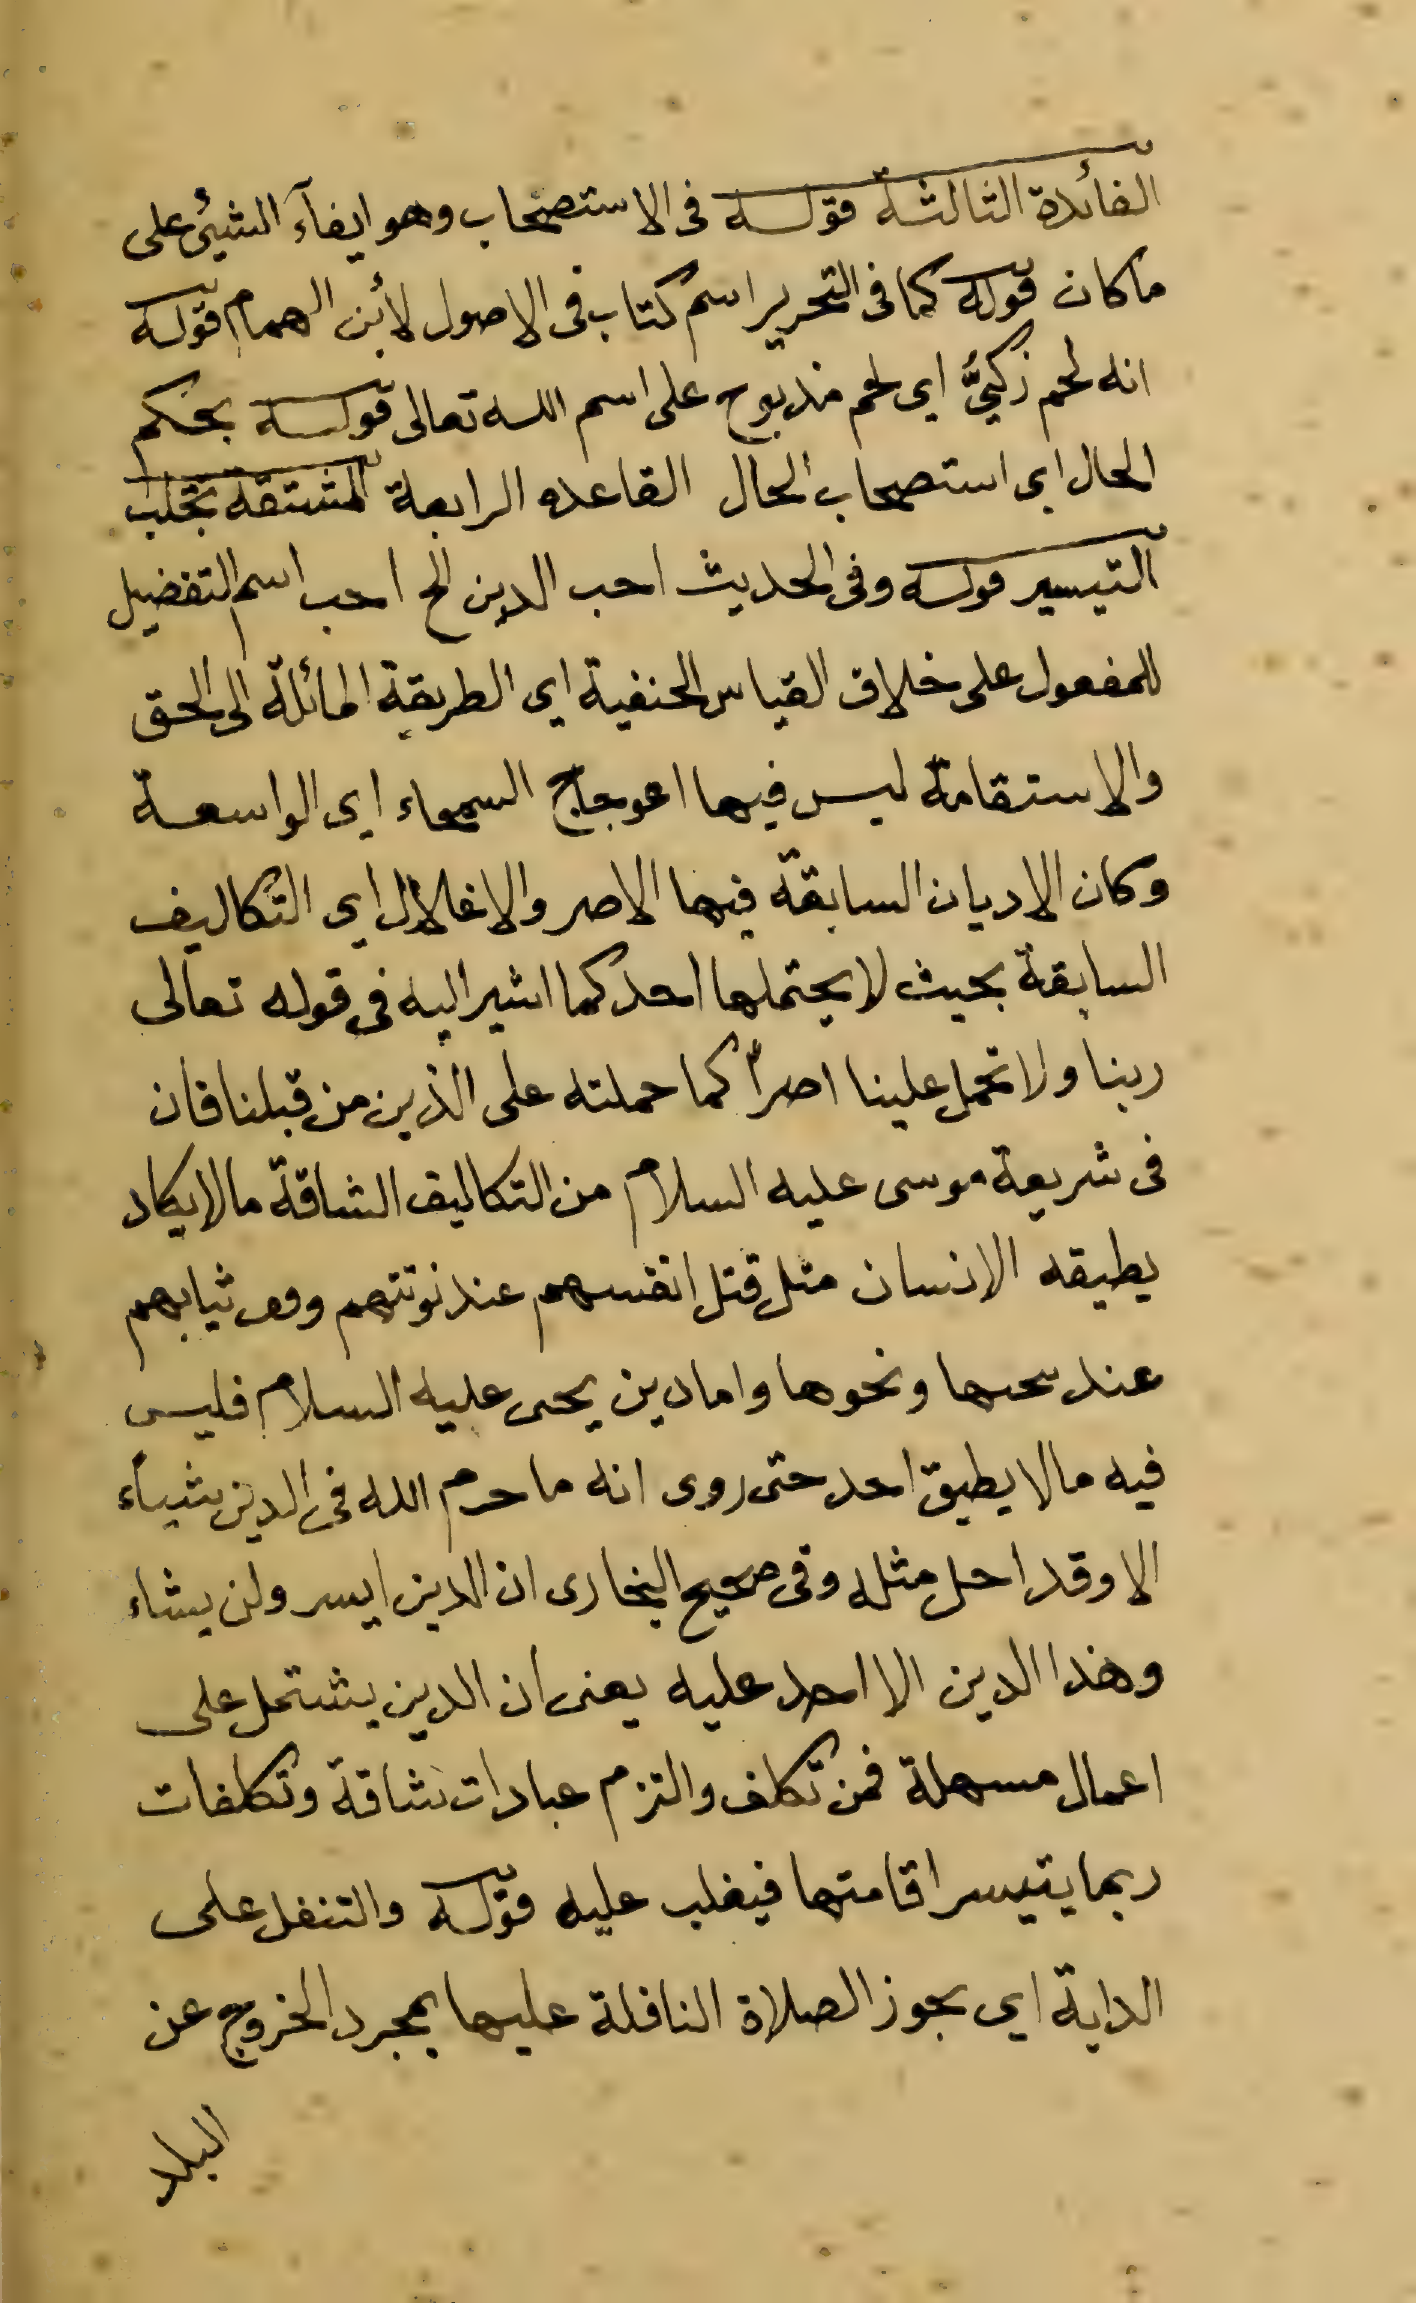 الفائدة الثالثة قوله فى الاستصحاب وهو ايفآء الشيئ على
ماكان قوله كما فى التحرير اسم كتاب فى الاصول لأبن الهمام قوله
انه لحم زكيٌّ اى لحم مذبوح على اسم الله تعالى قوله بحكم
الحال اى استصحاب الحال القاعده الرابعة المشتقة تجلب
التيسير قوله وفى الحديث احب الدين الخ احب اسم التفضيل
للمفعول على خلاف القياس الحنفية اى الطريقة المائلة الى الحق
والاستقامة ليس فيها اعوجاج السمحاء اى الواسعة
وكان الاديان السابقة فيها الاصر والاغلال اى التكاليف
السابقة بحيث لا يحتملها احد كما اشير اليه فى قوله تعالى
ربنا ولا تحمل علينا اصراً كما حملته على الذين من قبلنا فان
فى شريعة موسى عليه السلام من التكاليف الشاقة مالا يكاد
يطيقه الانسان مثل قتل انفسهم عند نوتتهم ثيابهم
عند ونحوها واما دين يحى عليه السلام فليس
فيه مالا يطيق احد حتى روى انه ما حرم الله فى الدين شيأء
الا وقد احل مثله وفى صحيح البخارى ان الدين ايسر ولن يشاء
وهذا الدين الا احد عليه يعنى ان الدين يشتمل على
اعمال مسهلة فمن تكلف والتزم عبادات شاقة وتكلفات
ربما يتيسر اقامتها فيغلب عليه قوله والتنفل على
الداية اى يجوز الصلاة النافلة عليها بمجرد الخروج عن
البلد